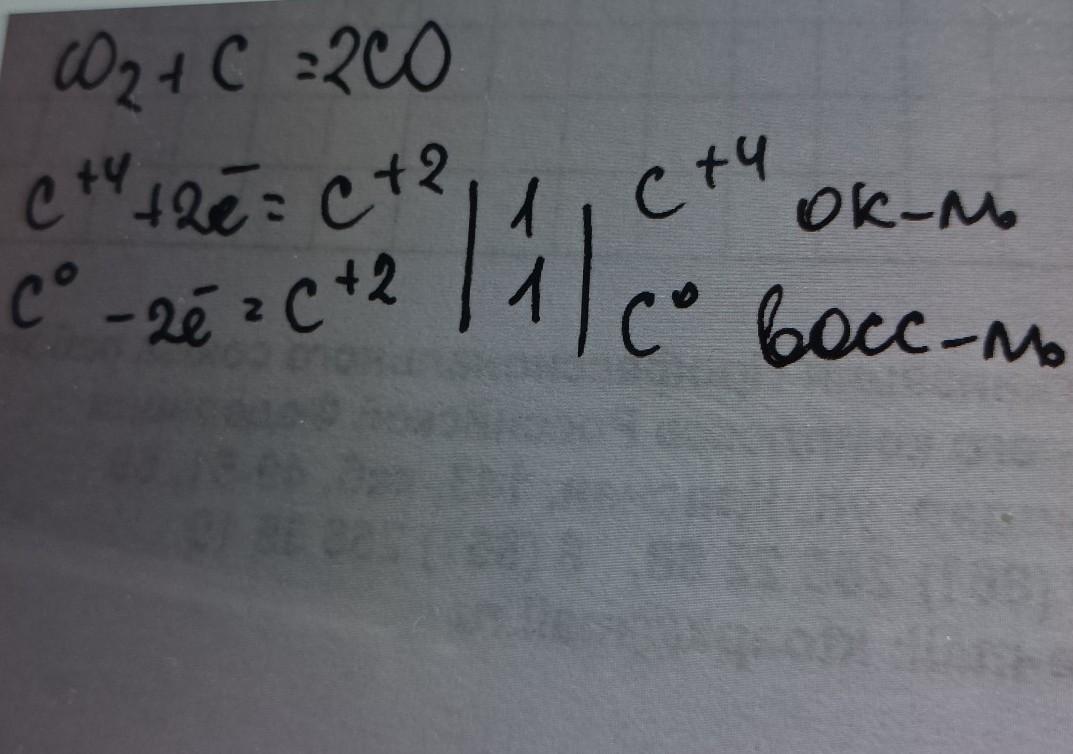 CO₂ + C = 2CO
C⁺⁴ + 2ē = C⁺² | 1 | C⁺⁴ ок-ль
C⁰ - 2ē = C⁺² | 1 | C⁰ восс-ль